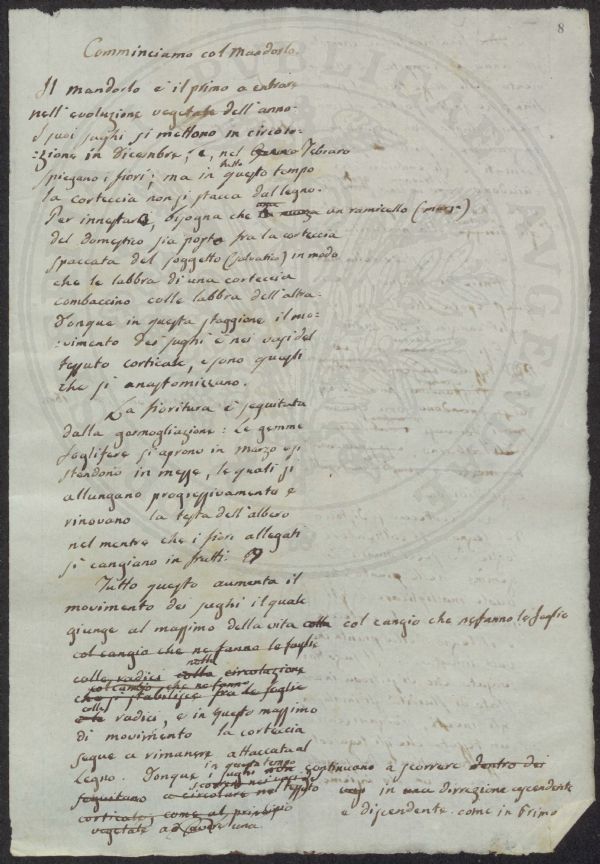 8
Comminciamo col Mandorlo.
Il mandorlo è il primo a entrare
nell'evoluzione vegetale dell'anno.
I suoi sughi si mettono in circola-
:zione in Dicembre; e, nel Febraro
spiegano i fiori; ma in questo tempo
tutto
la corteccia non si stacca dal legno.
Per innestare, bisogna che un ramicello (marza)
del domestico sia posto fra la corteccia
spaccata del soggetto (salvatico) in modo
che le labbra di una corteccia
combaccino colle labbra dell'altra.
Donque in questa staggione il mo-
:vimento dei sughi è nei vasi del
tessuto corticale, e sono questi
che si anastomizzano.
La fioritura è seguitata
dalla germogliazione: Le gemme
foglifere si aprono in marzo e si
stendono in messe, le quali si
allungano progressivamente e
rinovano la testa dell'albero
nel mentre che i fiori allegati
si cangiano in frutti.
Tutto questo aumenta il
movimento dei sughi il quale
giunge al massimo della vita colla col cangio che ne fanno le foglie
col cangio che ne fanno le foglie
colle radici nella circolazione
col cambio che ne fanno
che si stabilisce fra le foglie
colle
e le radici, e in questo massimo
di movimento la corteccia
segue a rimanere attaccata al
in questo tempo
legno. Donque i sughi non continuano a scorrere dentro dei
seguitano a circolare nel tessuto in una dirrezione ascendente
corticale, come al principio e discendente come in Primo
vegetale ad avere una